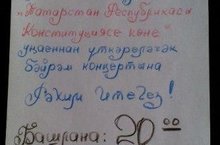 "Татарстан Республикасы
Конституциясе көне"
уңаеннан үткәреләчәк
бәйрәм концертына
Рәхим итегез!
Башлана: 20 00